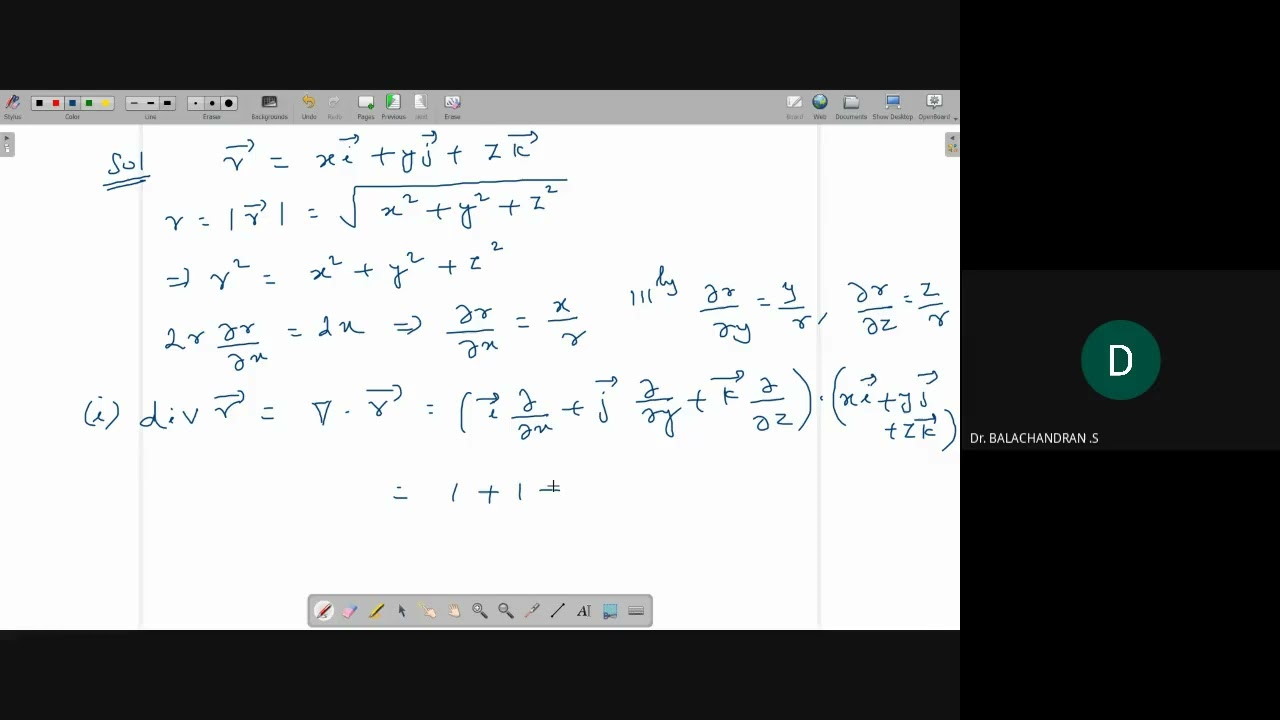 Stylus Color Line Eraser Backgrounds Undo Redo Pages Previous Next Erase Board Web Documents Show Desktop OpenBoard
Sol r⃗ = xi⃗ + yj⃗ + zk⃗
r = |r⃗| = √(x² + y² + z²)
⇒ r² = x² + y² + z²
2r ∂r/∂x = 2x ⇒ ∂r/∂x = x/r lllly ∂r/∂y = y/r, ∂r/∂z = z/r
(i) div r⃗ = ∇ · r⃗ = (i⃗ ∂/∂x + j⃗ ∂/∂y + k⃗ ∂/∂z) · (xi⃗ + yj⃗ + zk⃗)
= 1 + 1 +
D
Dr. BALACHANDRAN .S